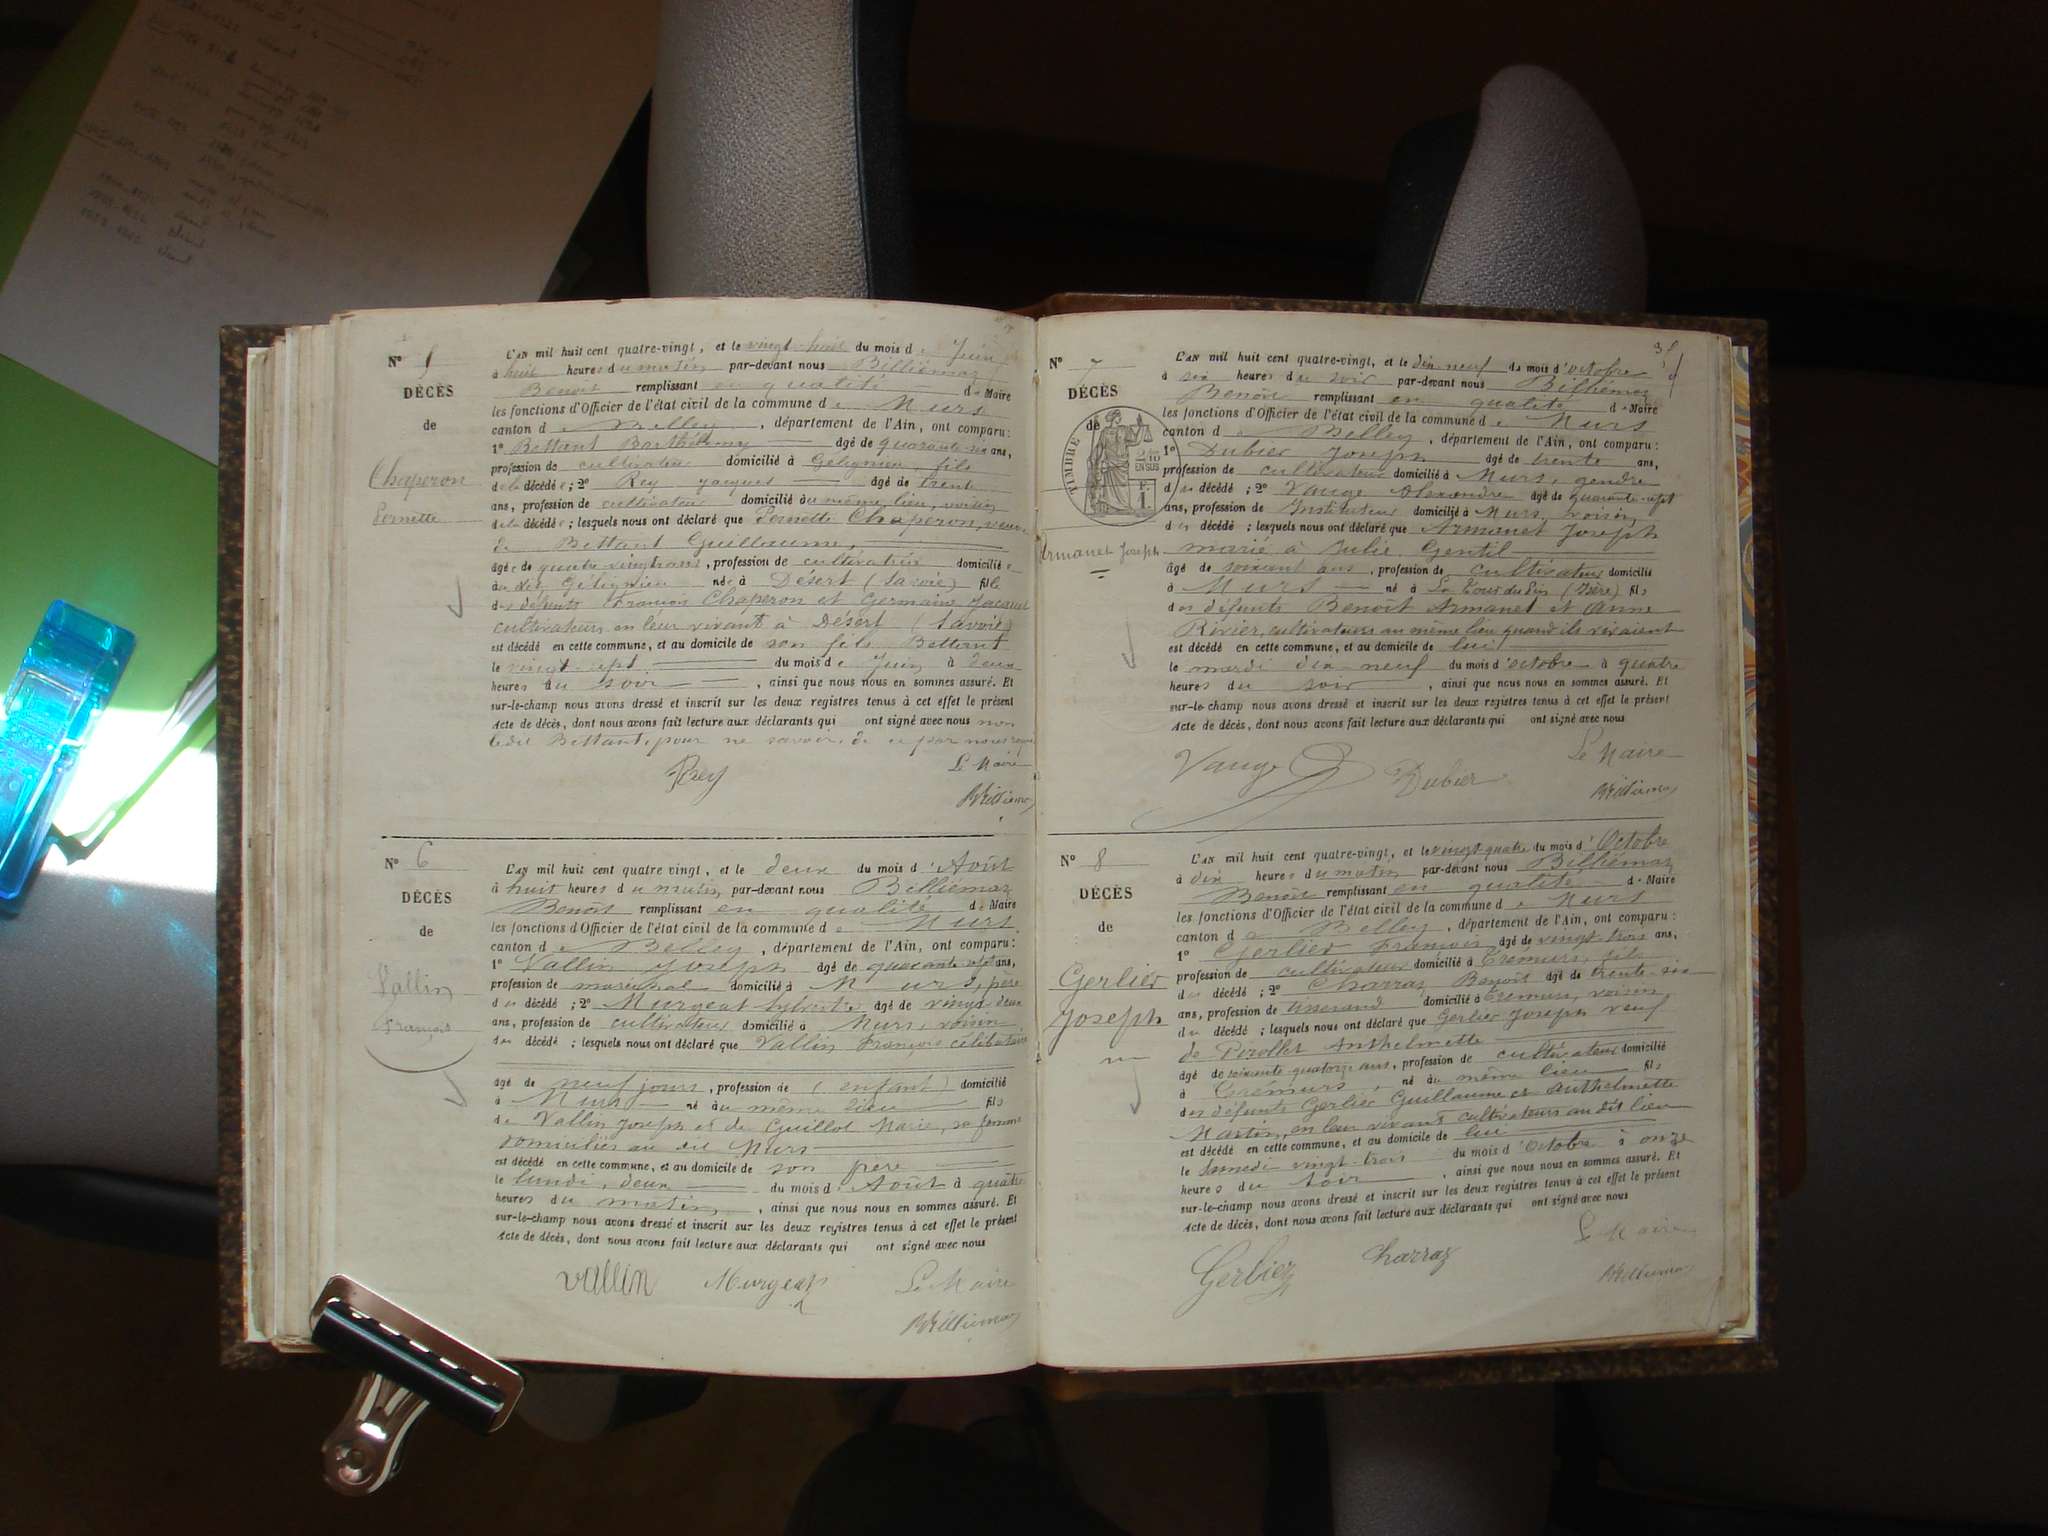 N° 5
DÉCÈS
de
Chaperon
Pernette
L'AN mil huit cent quatre-vingt, et le vingt-huit du mois de Juin
à huit heures du matin par-devant nous Billiémaz
Benoît remplissant en qualité de Maire
les fonctions d'Officier de l'état civil de la commune de Murs
canton de Belley, département de l'Ain, ont comparu:
1° Bettant Barthélemy âgé de quarante six ans,
profession de cultivateur domicilié à Gélignieu, fils
de la décédée; 2° Rey Jacques âgé de trente
ans, profession de cultivateur domicilié au même lieu, voisin
de la décédée; lesquels nous ont déclaré que Pernette Chaperon, veuve
de Bettant Guillaume,
âgée de quatre vingt ans, profession de cultivatrice domiciliée
au dit Gélignieu née à Désert (Savoie) fille
des défunts François Chaperon et Germaine Jacquet
cultivateurs en leur vivant à Désert (Savoie)
est décédé en cette commune, et au domicile de son fils Bettant
le vingt-sept du mois de Juin à deux
heures du soir, ainsi que nous nous en sommes assuré. Et
sur-le-champ nous avons dressé et inscrit sur les deux registres tenus à cet effet le présent
Acte de décès, dont nous avons fait lecture aux déclarants qui ont signé avec nous non
ledit Bettant, pour ne savoir, de ce par nous requis
Rey
Le Maire
BBilliemaz
N° 6
DÉCÈS
de
Vallin
François
L'AN mil huit cent quatre vingt, et le deux du mois d'Août
à huit heures du matin par-devant nous Billiémaz
Benoît remplissant en qualité de Maire
les fonctions d'Officier de l'état civil de la commune de Murs
canton de Belley, département de l'Ain, ont comparu:
1° Vallin Joseph âgé de quarante sept ans,
profession de maréchal domicilié à Murs, père
du décédé; 2° Murgeat Sylvestre âgé de vingt deux
ans, profession de cultivateur domicilié à Murs, voisin
du décédé; lesquels nous ont déclaré que Vallin François célibataire
âgé de neuf jours, profession de (enfant) domicilié
à Murs né au même lieu fils
de Vallin Joseph et de Guillot Marie, sa femme
domiciliés au dit Murs
est décédé en cette commune, et au domicile de son père
le lundi, deux du mois d'Août à quatre
heures du matin, ainsi que nous nous en sommes assuré. Et
sur-le-champ nous avons dressé et inscrit sur les deux registres tenus à cet effet le présent
Acte de décès, dont nous avons fait lecture aux déclarants qui ont signé avec nous
Vallin Murgeat Le Maire
BBilliemaz
N° 7
DÉCÈS
de
TIMBRE
2/10
EN SUS
F.
1.
Armanet Joseph
L'AN mil huit cent quatre-vingt, et le dix neuf du mois d'octobre
à six heures du soir par-devant nous Billiémaz
Benoît remplissant en qualité de Maire
les fonctions d'Officier de l'état civil de la commune de Murs
canton de Belley, département de l'Ain, ont comparu:
1° Dubier Joseph âgé de trente ans,
profession de cultivateur domicilié à Murs, gendre
du décédé; 2° Vauge Alexandre âgé de quarante-sept
ans, profession de Instituteur domicilié à Murs, voisin
du décédé; lesquels nous ont déclaré que Armanet Joseph
marié à Julie Gentil
âgé de soixant ans, profession de cultivateur domicilié
à Murs né à La Tour du Pin (Isère) fils
des défunts Benoît Armanet et Anne
Rivier, cultivateurs au même lieu quand ils vivaient
est décédé en cette commune, et au domicile de lui
le mardi dix neuf du mois d'octobre à quatre
heures du soir, ainsi que nous nous en sommes assuré. Et
sur-le-champ nous avons dressé et inscrit sur les deux registres tenus à cet effet le présent
Acte de décès, dont nous avons fait lecture aux déclarants qui ont signé avec nous
Vauge Dubier Le Maire
BBilliemaz
N° 8
DÉCÈS
de
Gerlier
Joseph
L'AN mil huit cent quatre-vingt, et le vingt quatre du mois d'Octobre
à dix heures du matin par-devant nous Billiémaz
Benoît remplissant en qualité de Maire
les fonctions d'Officier de l'état civil de la commune de Murs
canton de Belley, département de l'Ain, ont comparu:
1° Gerlier François âgé de vingt trois ans,
profession de cultivateur domicilié à Crémurs, fils
du décédé; 2° Charraz Benoît âgé de trente-six
ans, profession de tisserand domicilié à Crémurs, voisin
du décédé; lesquels nous ont déclaré que Gerlier Joseph veuf
de Pirollet Anthelmette
âgé de soixante quatorze ans, profession de cultivateur domicilié
à Crémurs, né au même lieu fils
des défunts Gerlier Guillaume et Anthelmette
Martin, en leur vivant cultivateurs au dit lieu
est décédé en cette commune, et au domicile de lui
le samedi vingt-trois du mois d'octobre à onze
heures du soir, ainsi que nous nous en sommes assuré. Et
sur-le-champ nous avons dressé et inscrit sur les deux registres tenus à cet effet le présent
Acte de décès, dont nous avons fait lecture aux déclarants qui ont signé avec nous
Gerlier Charraz Le Maire
BBilliemaz